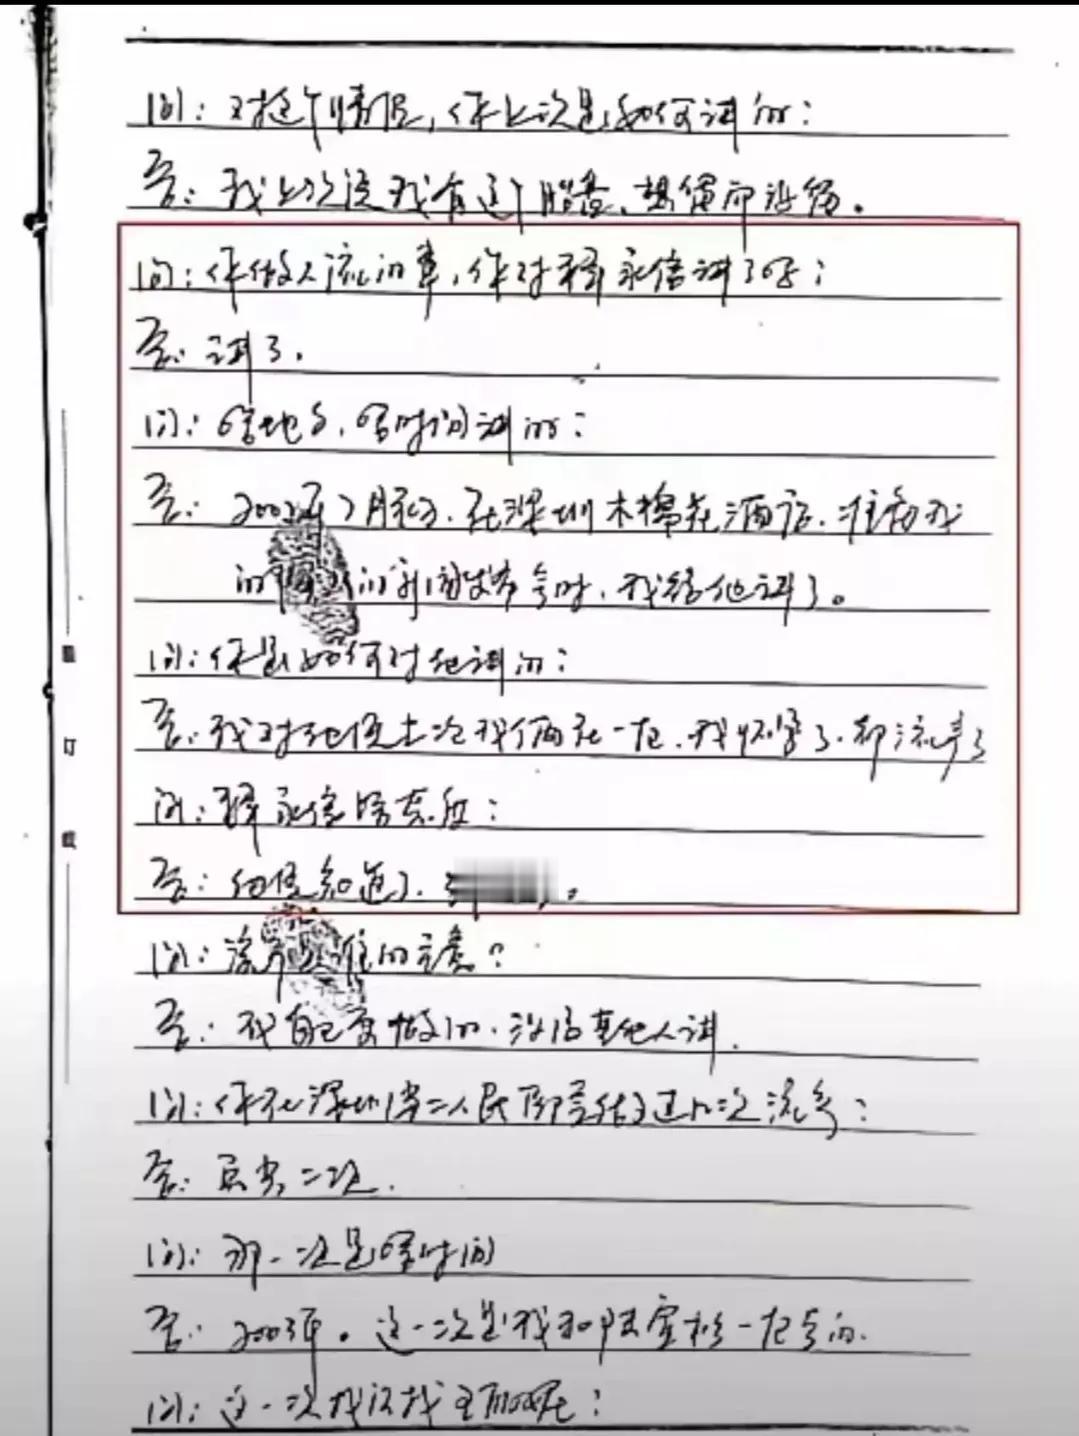 问：对这个情况，你上次是如何讲的：
答：我上次说我有这个胎盘，想留而没留。
问：你做人流的事，你对释永信讲了吗：
答：讲了。
问：啥地方，啥时间讲的：
答：2002年7月份，在深圳木棉花酒店，
的 的新闻发布会时，我给他讲了。
问：你是如何对他讲的：
答：我对他说上次我们俩在一起，我怀孕了，却流产了
问：释永信啥态度：
答：他说知道了，
问：流产是谁的主意？
答：我自己要做的，没给其他人讲。
问：你在深圳市第二人民医院做过几次流产：
答：二次。
问：那一次是啥时间
答：2003年。这一次是我和 一起去的。
问：这一次找没找
订